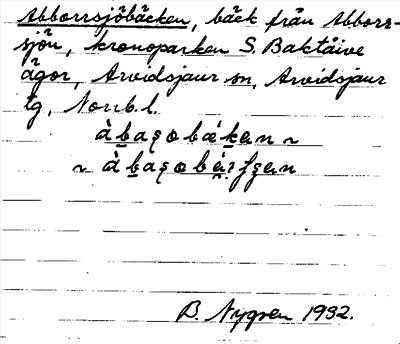 Abborrsjöbäcken, bäck från Abborr-
sjön, kronoparken S. Baktåive
ägor, Arvidsjaur sn, Arvidsjaur
tg, Norrb. l.
B. Nygren 1932.